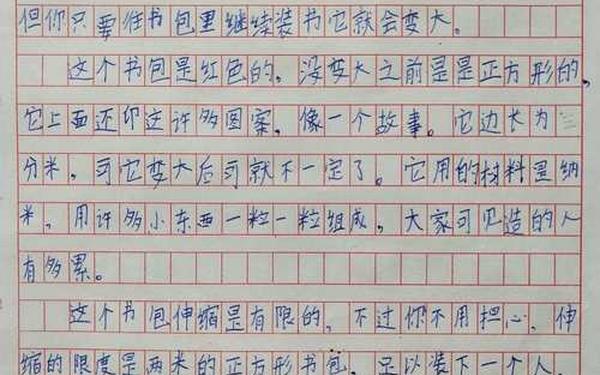 但你只要往书包里继续装书它就会变大。
这个书包是红色的,没变大之前是是正方形的,
它上面还印这许多图案,像一个故事。它边长为三
分米,可它变大后可就不一定了。它用的材料是纳
米,用许多小东西一粒一粒组成,大家可见造的人
有多累。
这个书包伸缩是有限的,不过你不用担心,伸
缩的限度是两米的正方形书包,足以装下一个人,